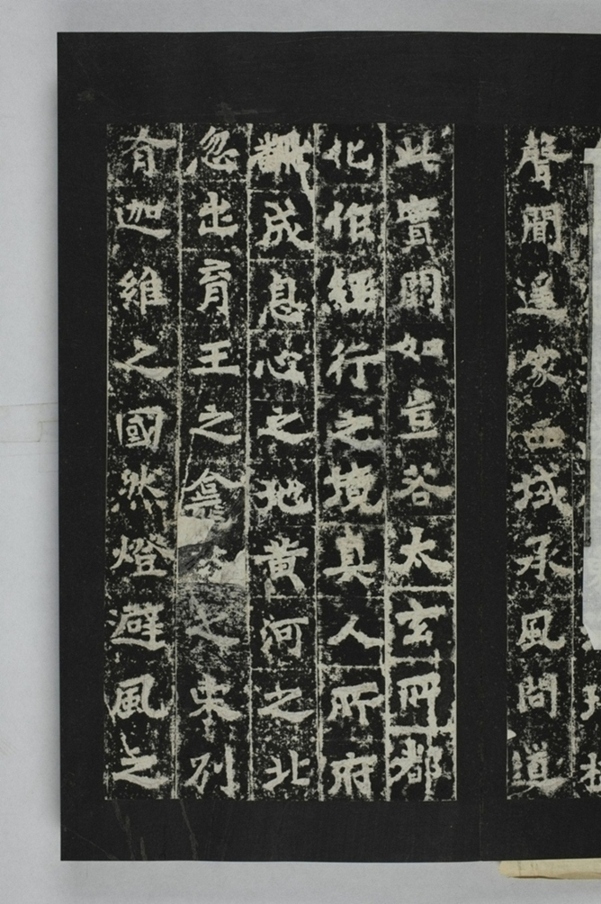 聲聞家西域承風問道
此實闕如豈若太玄所都
化作經行之境真人所府
翻成息心之地黃河之北
忽出育王之龕之東列
有迦維之國然燈避風之